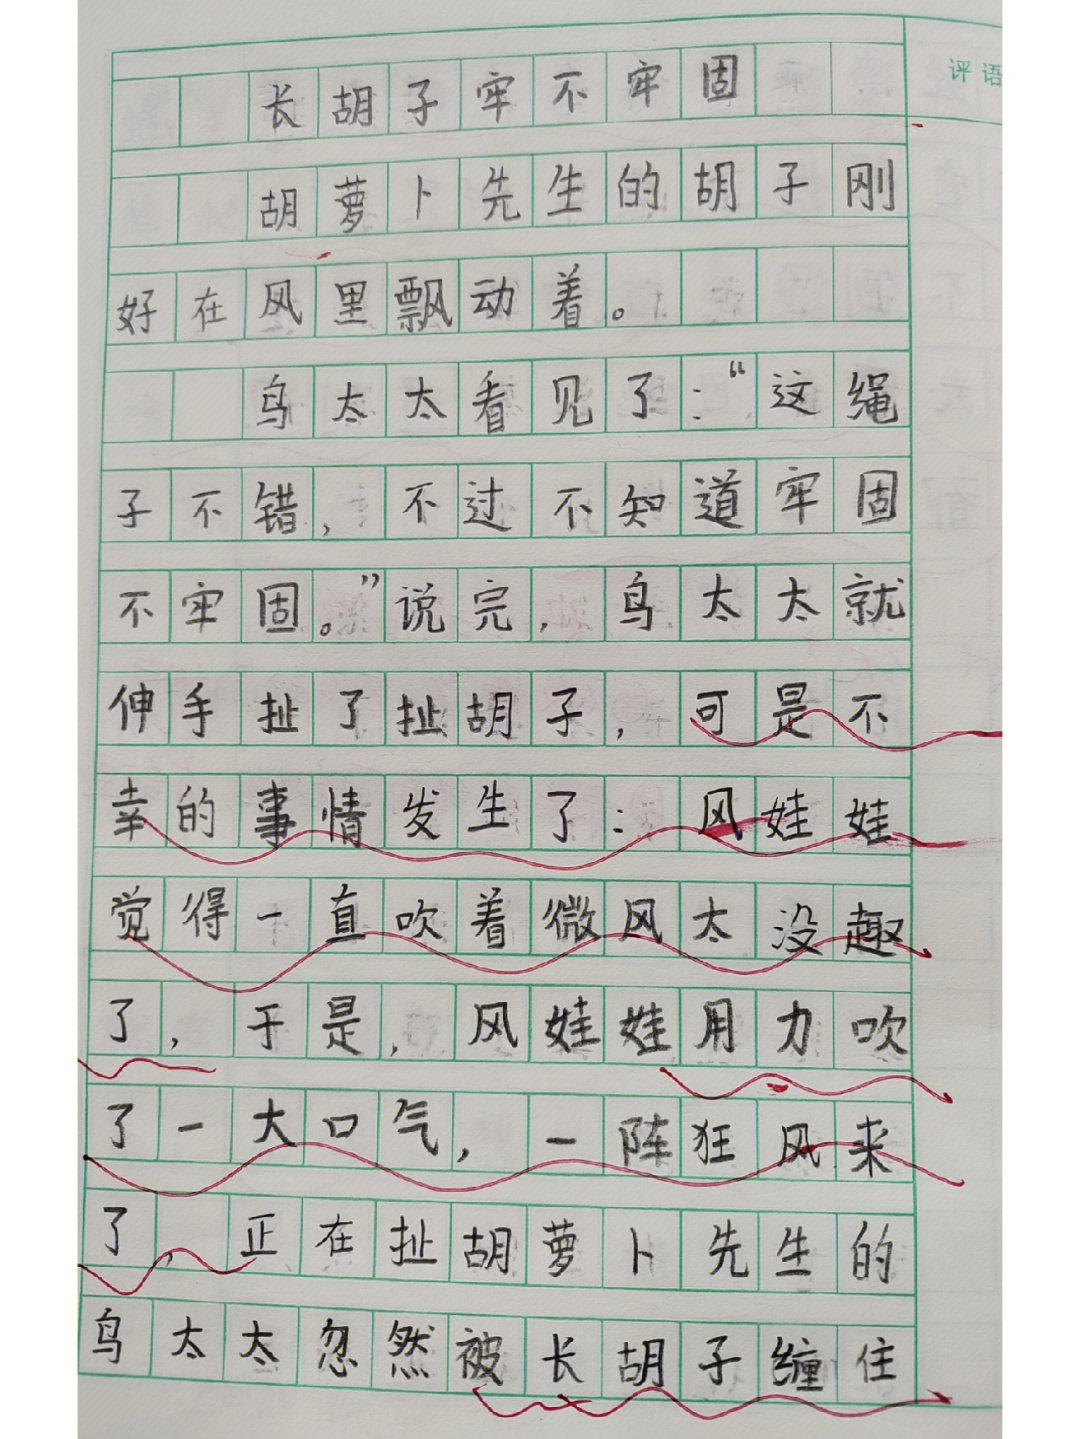 评语
长胡子牢不牢固
胡萝卜先生的胡子刚
好在风里飘动着。
鸟太太看见了：“这绳
子不错，不过不知道牢固
不牢固。”说完，鸟太太就
伸手扯了扯胡子，可是不
幸的事情发生了：风娃娃
觉得一直吹着微风太没趣
了，于是，风娃娃用力吹
了一大口气，一阵狂风来
了，正在扯胡萝卜先生的
鸟太太忽然被长胡子缠住